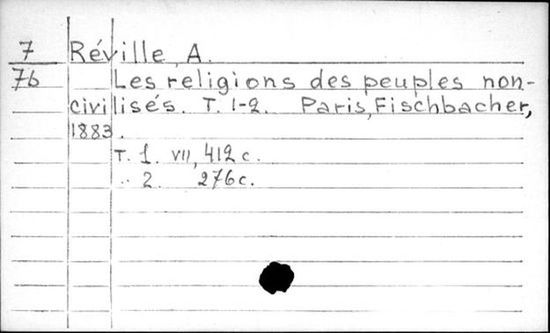 7 Réville, A.
76 Les religions des peuples non-
civilisés. T. 1-2. Paris, Fischbacher,
1883.
T. 1. VII, 412 c.
.. 2. 276 c.